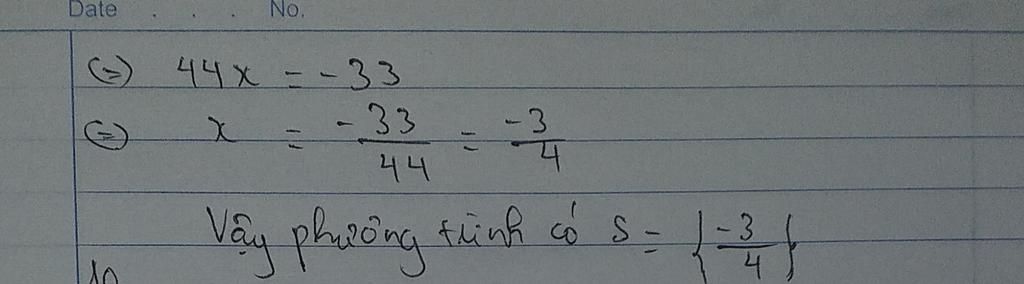 Date . . . No.
(=) 44x = -33
(=) x = -33/44 = -3/4
Vậy phương trình có S = {-3/4}